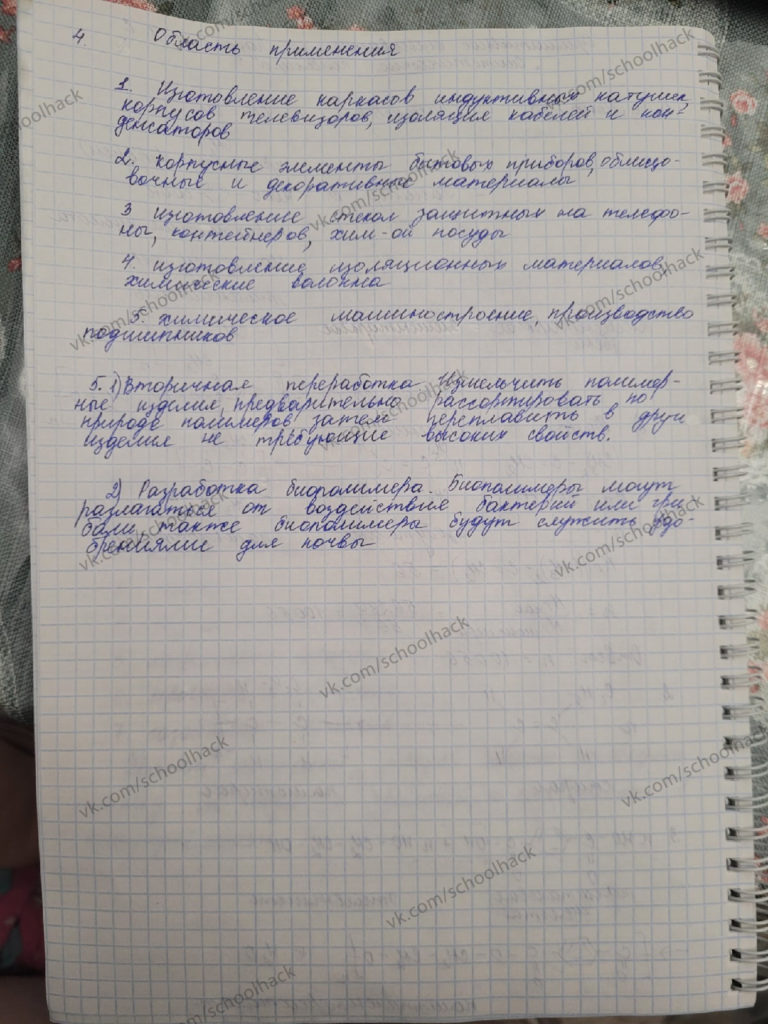 4. Область применения
1. Изготовление каркасов индуктивных катушек,
корпусов телевизоров, изоляция кабелей и кон-
денсаторов
2. корпусные элементы бытовых приборов, облицо-
вочные и декоративные материалы
3 изготовление стекол защитных на телефо-
ны, контейнеров, хим-ой посуды
4. изготовление изоляционных материалов,
химические волокна
5. химическое машиностроение, производство
подшипников
5. 1) Вторичная переработка. Измельчить полимер-
ные изделия, предварительно рассортировать по
природе полимеров, затем переплавить в други
изделия не требующие высоких свойств.
2) Разработка биополимера. Биополимеры могут
разлагаться от воздействия бактерий или гри-
бами, также биополимеры будут служить удо-
брениями для почвы
vk.com/schoolhack
vk.com/schoolhack
vk.com/schoolhack
vk.com/schoolhack
vk.com/schoolhack
vk.com/schoolhack
vk.com/schoolhack
vk.com/schoolhack
vk.com/schoolhack
vk.com/schoolhack
vk.com/schoolhack
vk.com/schoolhack
vk.com/schoolhack
vk.com/schoolhack